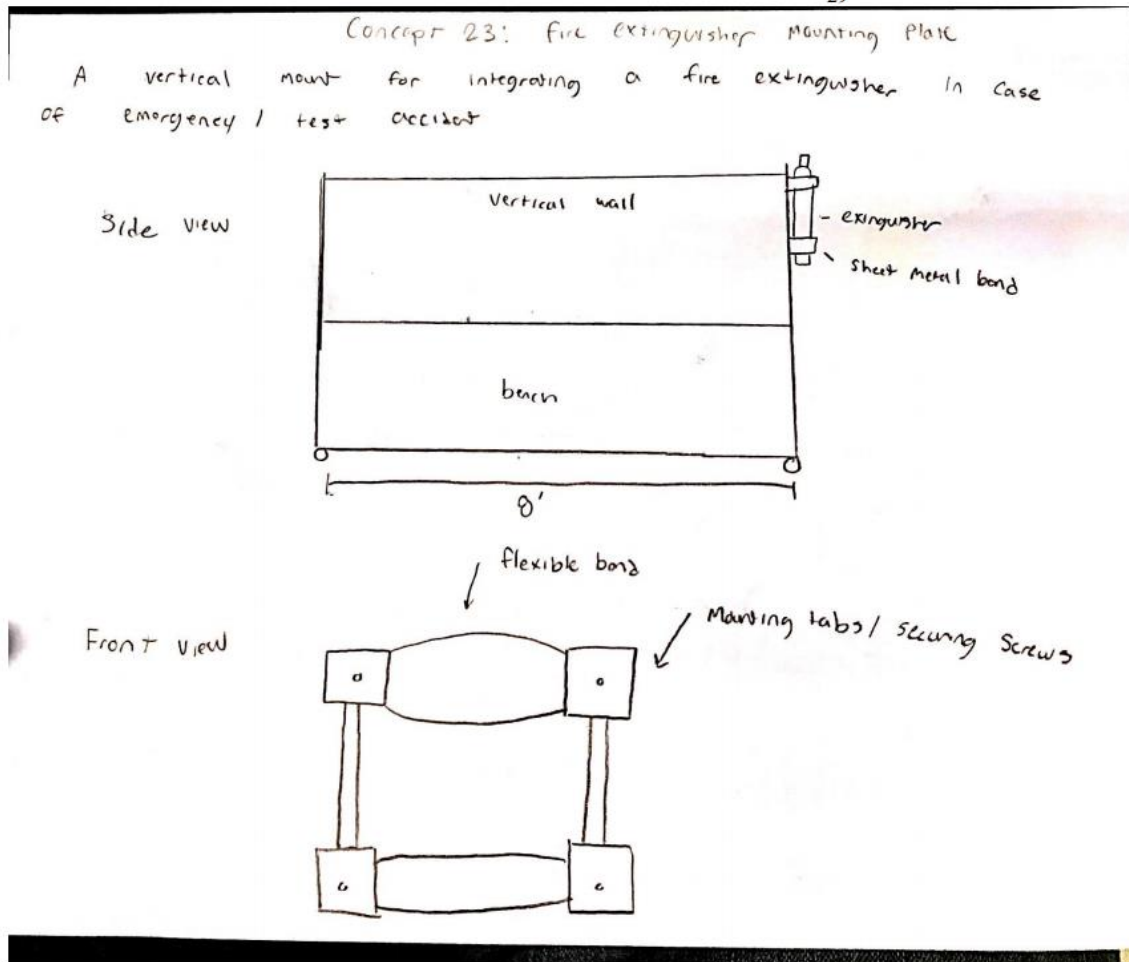 Concept 23: Fire Extinguisher Mounting Plate
A vertical mount for integrating a fire extinguisher in case
of emergency / test accident
Side view
vertical wall
- exinguisher
sheet metal band
bench
8'
flexible band
Front view
Mounting tabs / securing screws